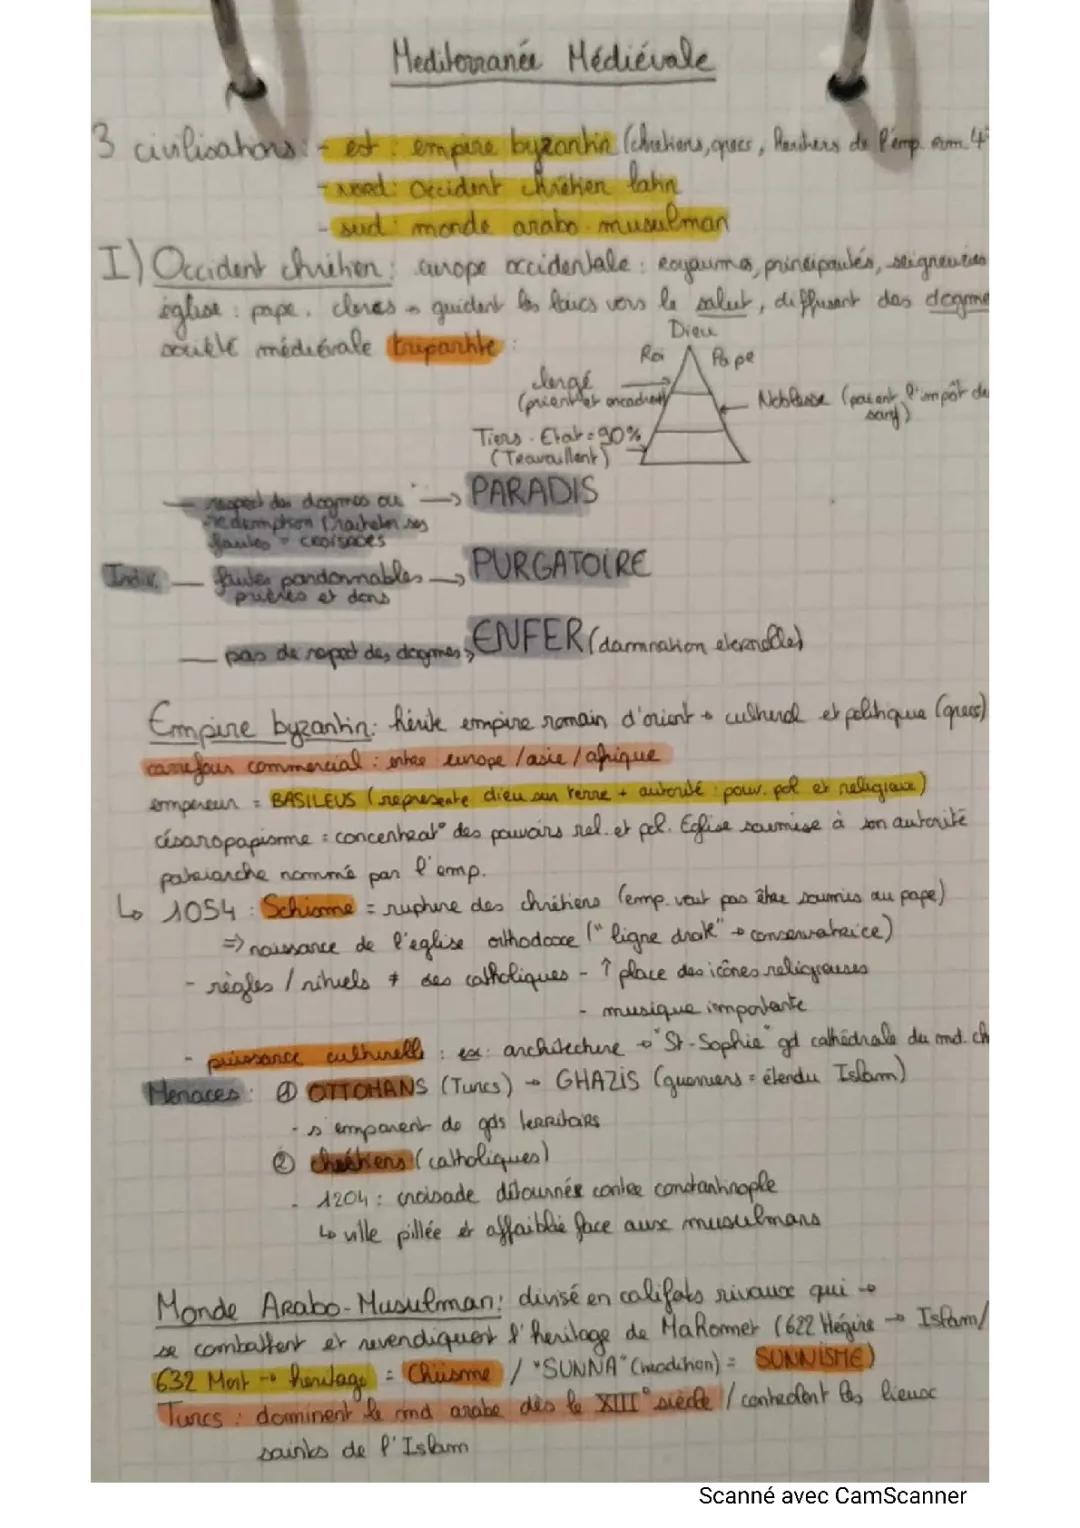 Mediterranée Médiévale
3 civilisations : - est : empire byzantin (chrétiens, grecs, héritiers de l'emp. rom. 4
- nord : Occident chrétien latin
- sud : monde arabo-musulman
I) Occident chrétien : europe occidentale : royaumes, principautés, seigneuries
église : pape, clercs → guident les laïcs vers le salut, diffusent des dogme
société médiévale tripartite :
Dieu
Roi Pape
clergé
(prient et encadrent)
Noblesse (paient l'impôt de
sang)
Tiers-Etat = 90%
(Travaillent)
— respect des dogmes ou → PARADIS
redemption (racheter ses
fautes = CROISADES
Indiv. — fautes pardonnables → PURGATOIRE
prières et dons
— pas de respect des dogmes → ENFER (damnation eternelle)
Empire byzantin : hérite empire romain d'orient → culturel et politique (grecs)
carrefour commercial : entre europe / asie / afrique
empereur = BASILEUS (represente dieu sur terre + autorité : pouv. pol et religieux)
césaropapisme = concentrat° des pouvoirs rel. et pol. Eglise soumise à son autorité
patriarche nommé par l'emp.
↳ 1054 : Schisme = rupture des chrétiens (emp. veut pas être soumis au pape)
⇒ naissance de l'eglise orthodoxe ("ligne droite" → conservatrice)
- règles / rituels ≠ des catholiques - ↑ place des icônes religieuses
- musique importante
- puissance culturelle : ex : architecture → "St-Sophie" gd cathédrale du md. ch
Menaces : ① OTTOMANS (Turcs) → GHAZIS (guerriers = étendu Islam)
- s'emparent de gds territoires
② chrétiens (catholiques)
- 1204 : croisade détournée contre constantinople
↳ ville pillée et affaiblie face aux musulmans
Monde Arabo-Musulman : divisé en califats rivaux qui →
se combattent et revendiquent l'heritage de Mahomet (622 Hégire → Islam/
632 Mort → heritage = Chiisme / "SUNNA" (tradition) = SUNNISME)
Turcs : dominent le md arabe dès le XIII° siècle / controlent les lieux
saints de l'Islam
Scanné avec CamScanner